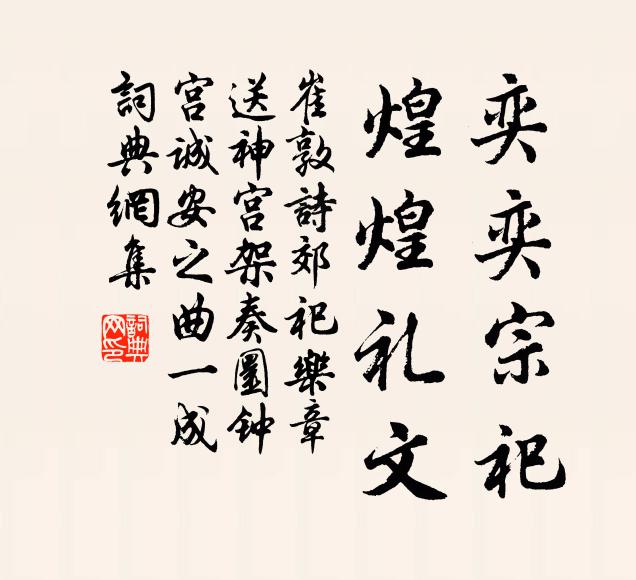 奕奕宗祀
煌煌礼文
崔敦詩郊祀樂章
送神宫架奏圜钟
宫誠安之曲一成
詞典網集
詞典网印